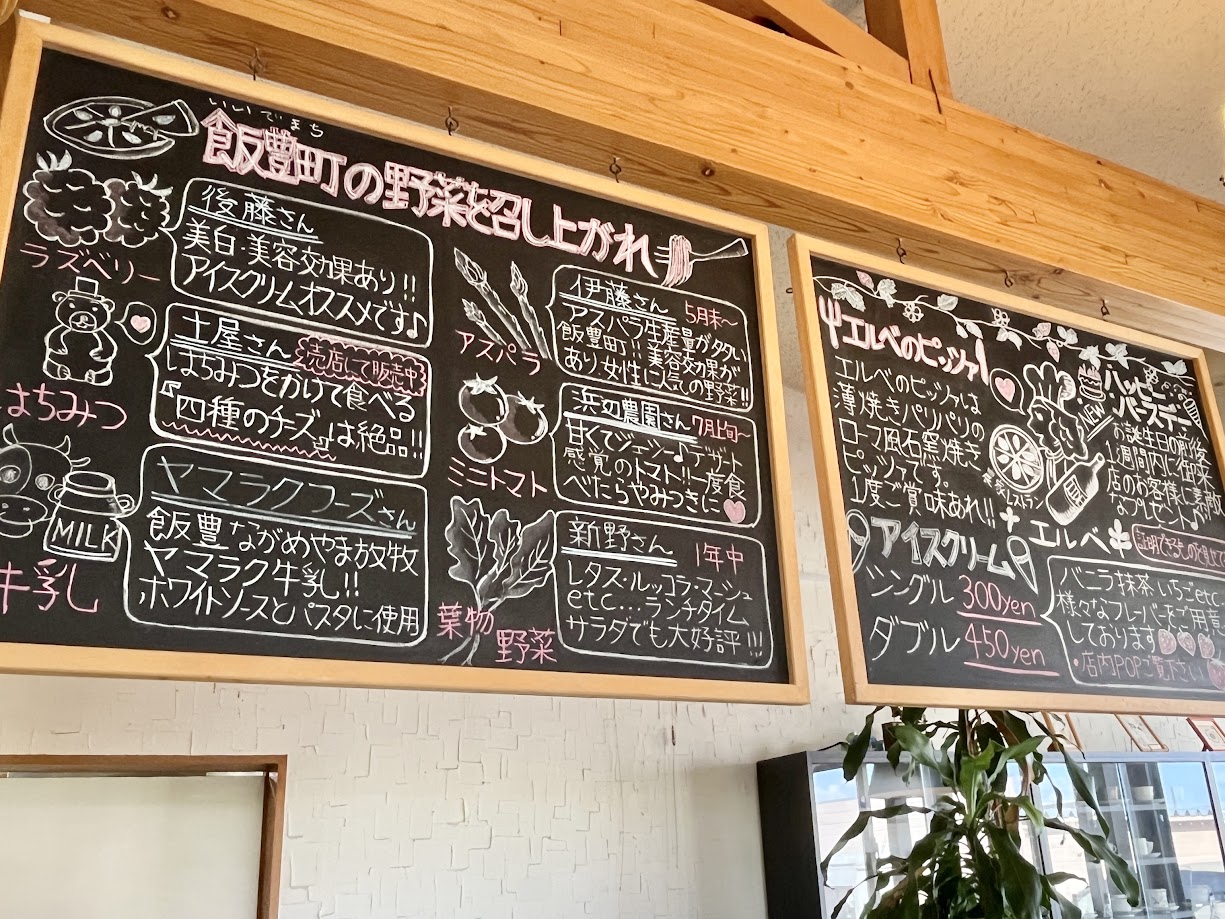 いいでまち
飯豊町の野菜を召し上がれ
ラズベリー
後藤さん
美白・美容効果あり!!
アイスクリームオススメです♪
はちみつ
土屋さん
売店にて販売中
はちみつをかけて食べる
『四種のチーズ』は絶品!!
牛乳
MILK
ヤマラクフーズさん
飯豊ながめやま放牧
ヤマラク牛乳!!
ホワイトソースとパスタに使用
アスパラ
伊藤さん 5月末〜
アスパラ生産量が多い
飯豊町!!美容効果が
あり女性に人気の野菜!!
ミニトマト
浜辺農園さん 7月上旬〜
甘くてジューシー♪デザート
感覚のトマト!!一度食
べたらやみつきに
葉物
野菜
新野さん 1年中
レタス・ルッコラ・マーシュ
etc...ランチタイム
サラダでも大好評!!!
エルベのピッツァ
エルベのピッツァは
薄焼きパリパリの
ローマ風石窯焼き
ピッツァです。
1度ご賞味あれ!!
農家レストラン
エルベ
NEW
ハッピー
バースデー
お誕生日の前後
1週間内に御来
店のお客様に素敵
なプレゼント♪
アイスクリーム
シングル 300yen
ダブル 450yen
バニラ抹茶いちごetc
様々なフレーバーをご用意
しております
・店内POPご覧下さい